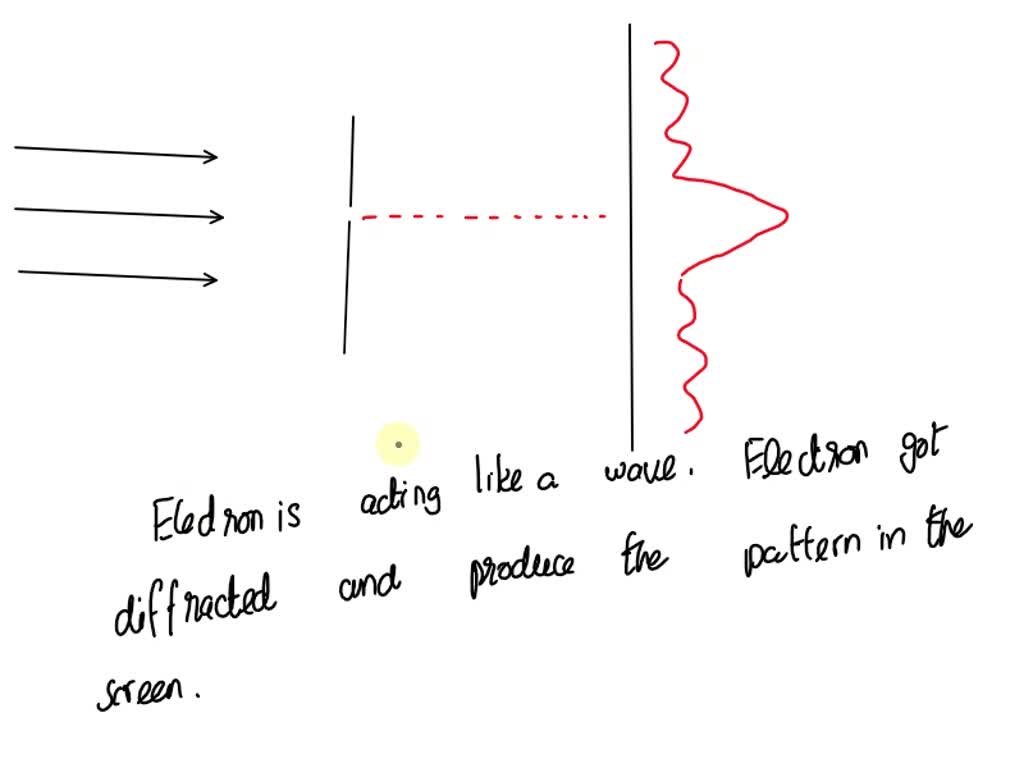 Electron is acting like a wave. Electron got
diffracted and produce the pattern in the
screen.